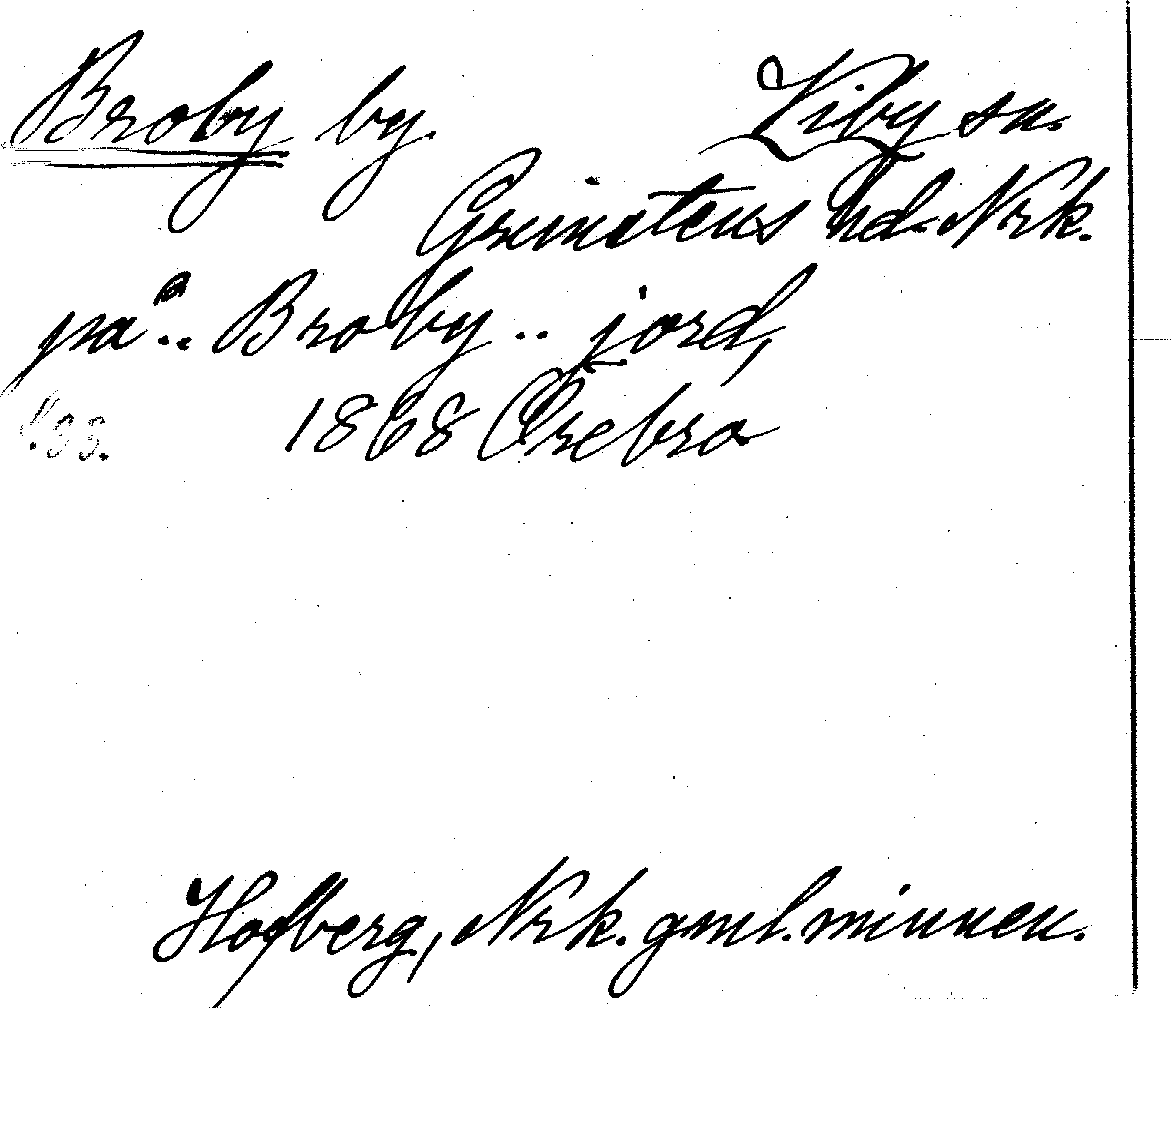 Broby by. Viby sn.
Grimstens hd. Nrk.
på .. Broby .. jord,
1868 Örebro
Hofberg, Nrk. gml. minnen.